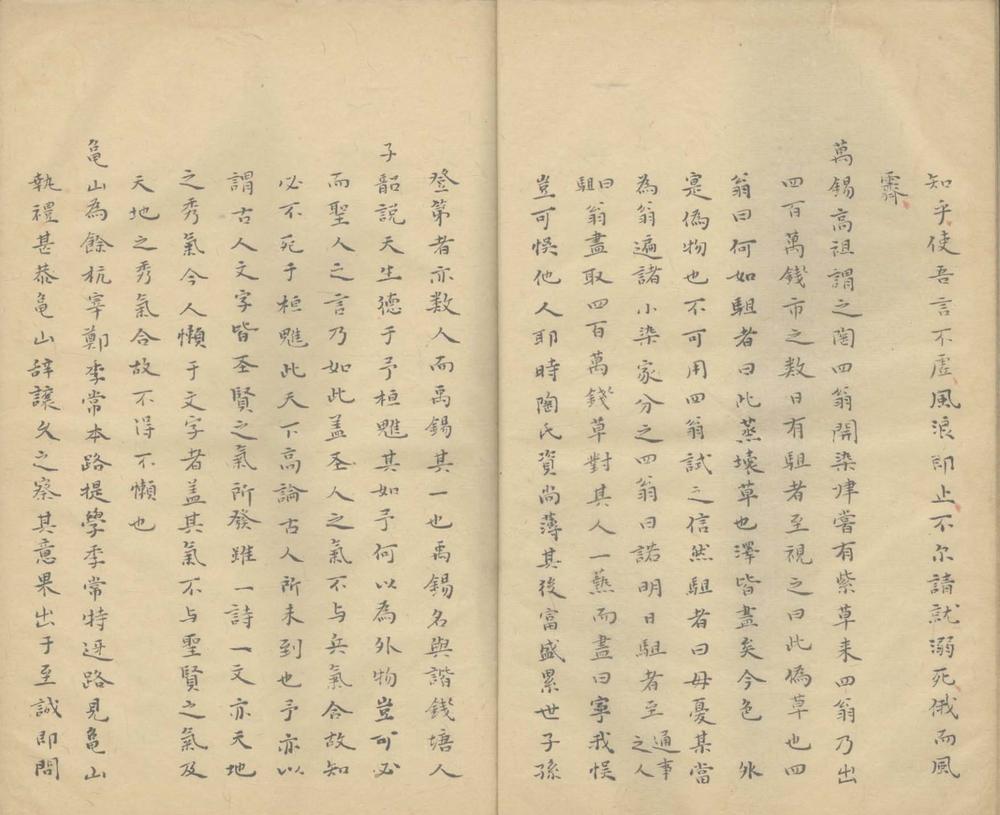 知乎使吾言不虛風浪即止不尔請就溺死俄而風
霽
萬錫高祖謂之陶四翁開染肆嘗有紫草来四翁乃出
四百萬錢市之数日有駔者至視之曰此偽草也四
翁曰何如駔者曰此蒸壊草也澤皆盡矣今色外
寔偽物也不可用四翁試之信然駔者曰毋憂某當
為翁遍諸小染家分之四翁曰諾明日駔者至通事之人
駔曰翁盡取四百萬錢草對其人一爇而盡曰寧我悮
豈可悮他人耶時陶氏資尚薄其後富盛累世子孫
登第者亦数人而禹錫其一也禹錫名與諧錢塘人
子韶説天生徳于予桓魋其如予何以為外物豈可必
而聖人之言乃如此盖圣人之氣不与兵氣合故知
必不死于桓魋此天下高論古人所未到也予亦以
謂古人文字皆圣賢之氣所發雖一詩一文亦天地
之秀氣今人懶于文字者盖其氣不与聖賢之氣及
天地之秀氣合故不得不懶也
亀山為餘杭宰鄭季常本路提學季常特迂路見亀山
執禮甚恭亀山辞讓久之察其意果出于至誠即問